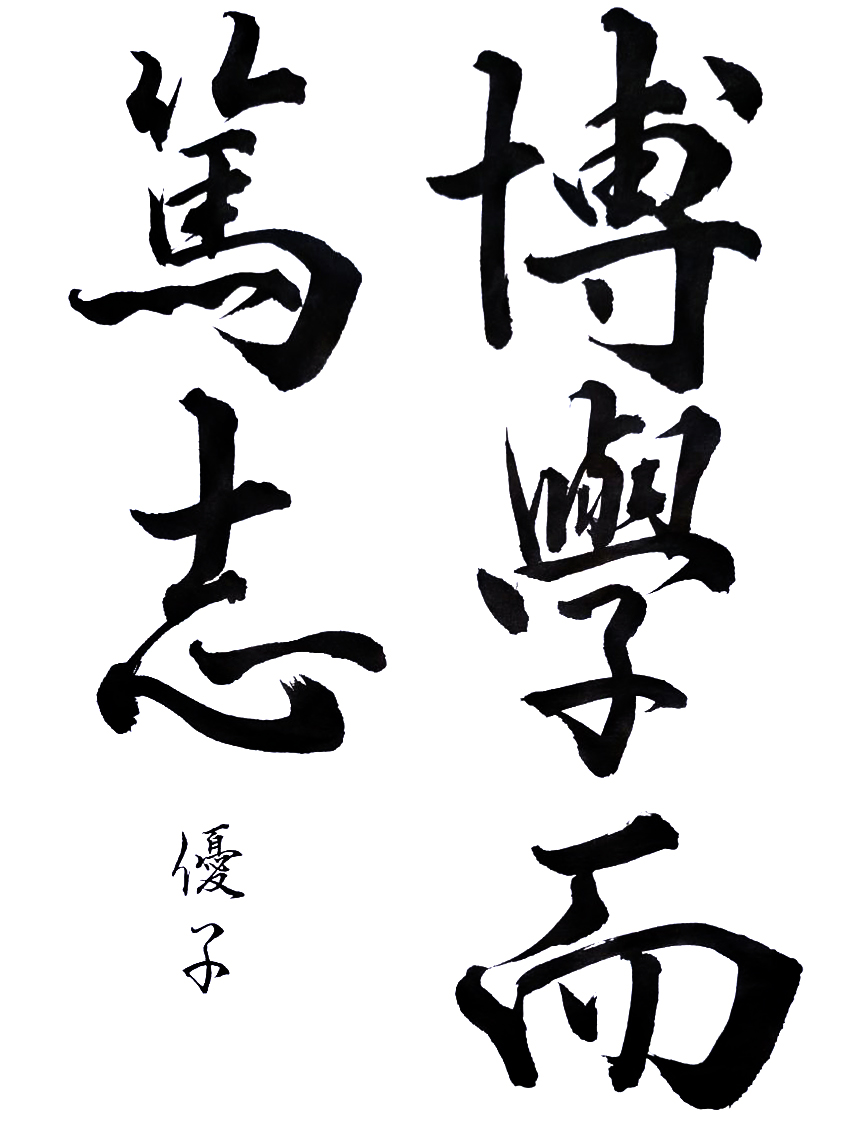 博學而
篤志
優子